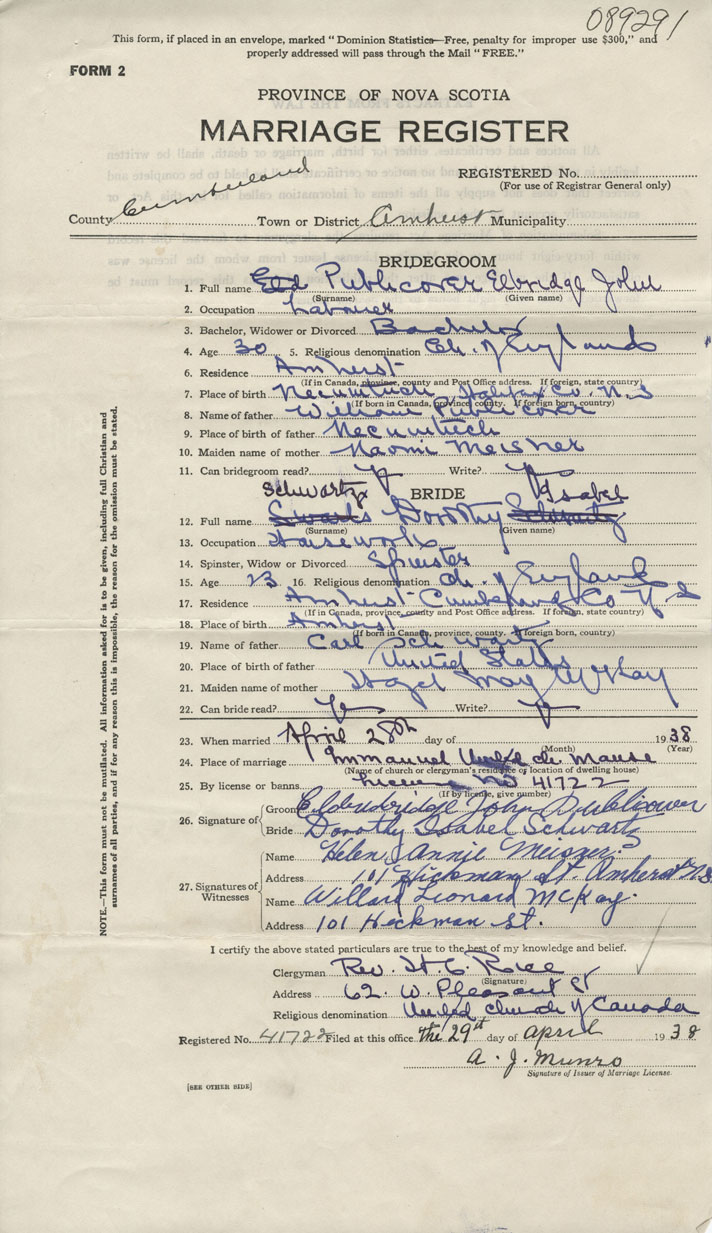 089291
This form, if placed in an envelope, marked "Dominion Statistics—Free, penalty for improper use $300," and
properly addressed will pass through the Mail "FREE."
FORM 2
PROVINCE OF NOVA SCOTIA
MARRIAGE REGISTER
REGISTERED No.
(For use of Registrar General only)
County Cumberland Town or District Amherst Municipality
BRIDEGROOM
1. Full name Publicover Elbridge John
(Surname) (Given name)
2. Occupation Labourer
3. Bachelor, Widower or Divorced Bachelor
4. Age 30 5. Religious denomination Ch. of England
6. Residence Amherst
(If in Canada, province, county and Post Office address. If foreign, state country)
7. Place of birth Necumteuch Halifax Co. N.S
(If born in Canada, province, county. If foreign born, country)
8. Name of father William Publicover
9. Place of birth of father Necumtech
10. Maiden name of mother Naomi Meisner
11. Can bridegroom read? y Write? y
BRIDE
Schwartz Isabel
12. Full name Swarts Dorothy Schwartz
(Surname) (Given name)
13. Occupation Housework
14. Spinster, Widow or Divorced Spinster
15. Age 23 16. Religious denomination Ch. of England
17. Residence Amherst Cumberland Co N S
(If in Canada, province, county and Post Office address. If foreign, state country)
18. Place of birth Amherst
(If born in Canada, province, county. If foreign born, country)
19. Name of father Carl Schwartz
20. Place of birth of father United States
21. Maiden name of mother Hazel May McKay
22. Can bride read? Yes Write? y
23. When married April 28th day of 1938
(Month) (Year)
24. Place of marriage Immanuel United ch. Manse
(Name of church or clergyman's residence or location of dwelling house)
25. By license or banns license No 41722
(If by license, give number)
26. Signature of
Groom Elbridge John Publicover
Bride Dorothy Isabel Schwartz
27. Signatures of Witnesses
Name Helen Annie Meisner
Address 101 Hickman St. Amherst N.S.
Name Willard Leonard McKay.
Address 101 Hickman St.
I certify the above stated particulars are true to the best of my knowledge and belief.
Clergyman Rev. H. C. Rice
(Signature)
Address 62. W. Pleasant St
Religious denomination United church of Canada
Registered No. 41722 Filed at this office the 29th day of April 1938
A. J. Munro
Signature of Issuer of Marriage License.
[SEE OTHER SIDE]
NOTE.—This form must not be mutilated. All information asked for is to be given, including full Christian and
surnames of all parties, and if for any reason this is impossible, the reason for the omission must be stated.